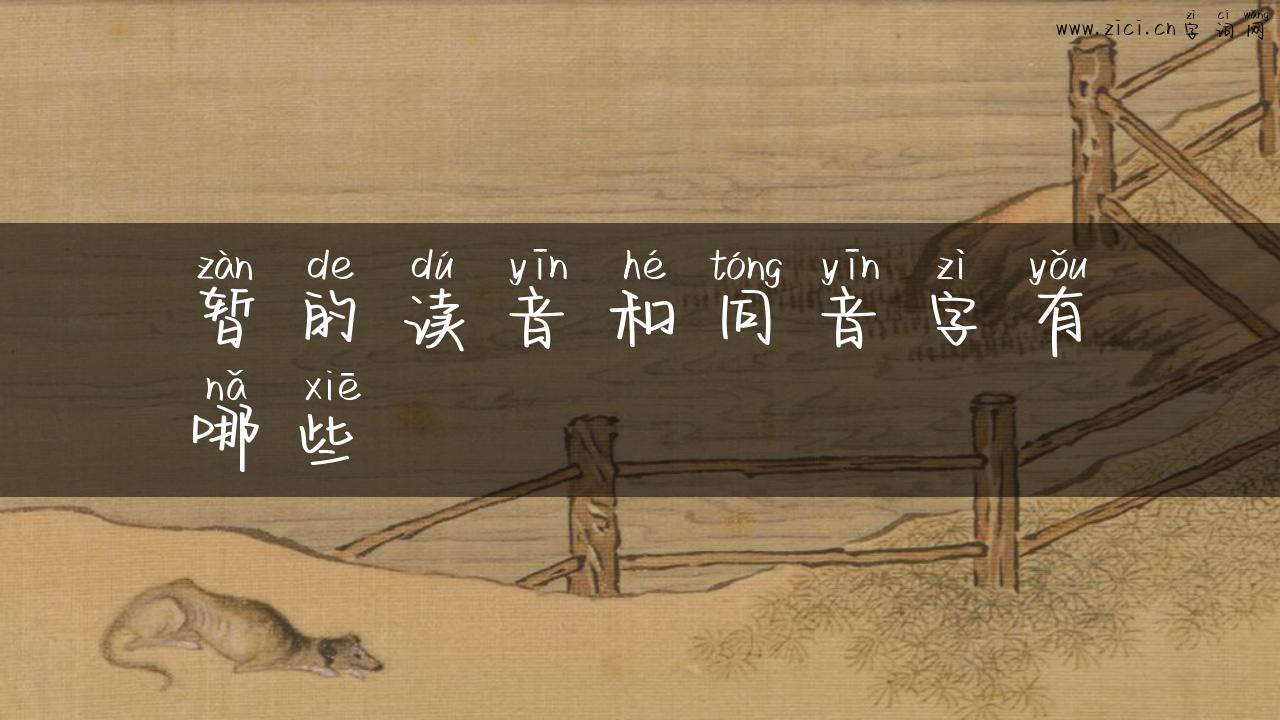 zì cí wǎng
www.zici.cn 字 词 网
zàn de dú yīn hé tóng yīn zì yǒu
暂 的 读 音 和 同 音 字 有
nǎ xiē
哪 些